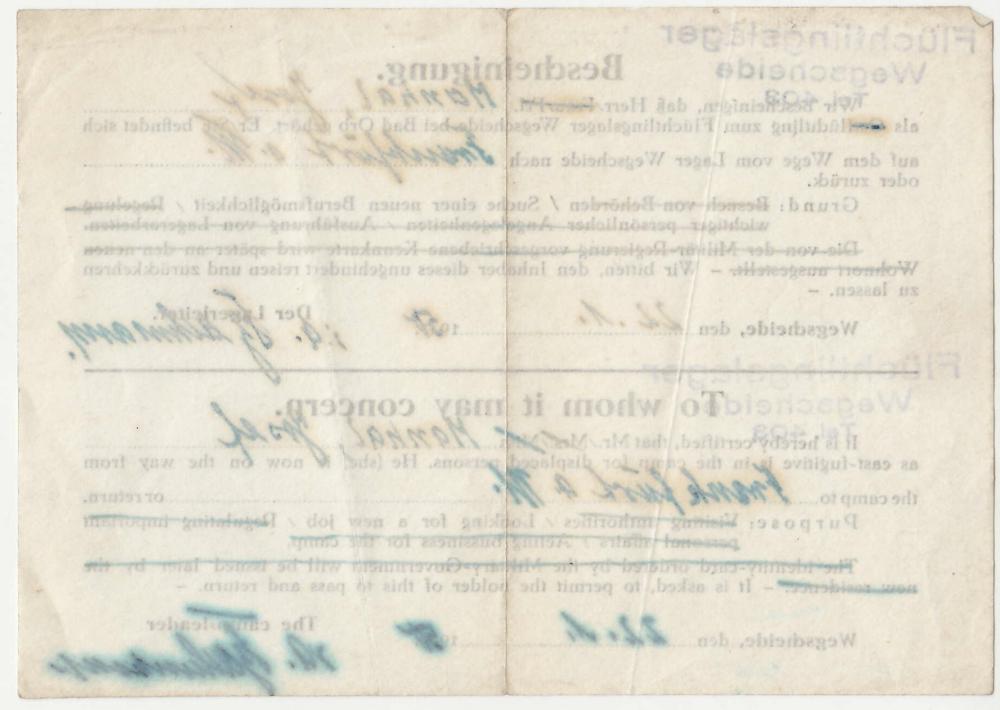 Flüchtlingslager
Wegscheide
Tel 403
Bescheinigung.
Wir bescheinigen, daß Herr Josef
als Ostflüchtling zum Flüchtlingslager Wegscheide bei Bad Orb gehört. Er befindet sich
auf dem Wege vom Lager Wegscheide nach Frankfurt a. M.
oder zurück.
Grund: Besuch von Behörden / Suche einer neuen Berufsmöglichkeit / Regelung
wichtiger persönlicher Angelegenheiten / Ausführung von Lagerarbeiten.
Die von der Militär-Regierung vorgeschriebene Kennkarte wird später an den neuen
Wohnort ausgestellt. – Wir bitten, den Inhaber dieses ungehindert reisen und zurückkehren
zu lassen. –
Der Lagerleiter.
Wegscheide, den 22. 1. 19 i. A.
Flüchtlingslager
Wegscheide
Tel 403
To whom it may concern.
It is hereby certified, that Mr./Mrs. Josef
as east-fugitive is in the camp for displaced persons. He (she) is now on the way from
the camp to Frankfurt a. M. or return.
Purpose: Visiting authorities / Looking for a new job / Regulating important
personal affairs / Acting bussiness for the camp.
The identity-card ordered by the Military-Government will be issued later by the
new residence. – It is asked, to permit the holder of this to pass and return. –
The camp-leader
Wegscheide, den 22. 1. 19